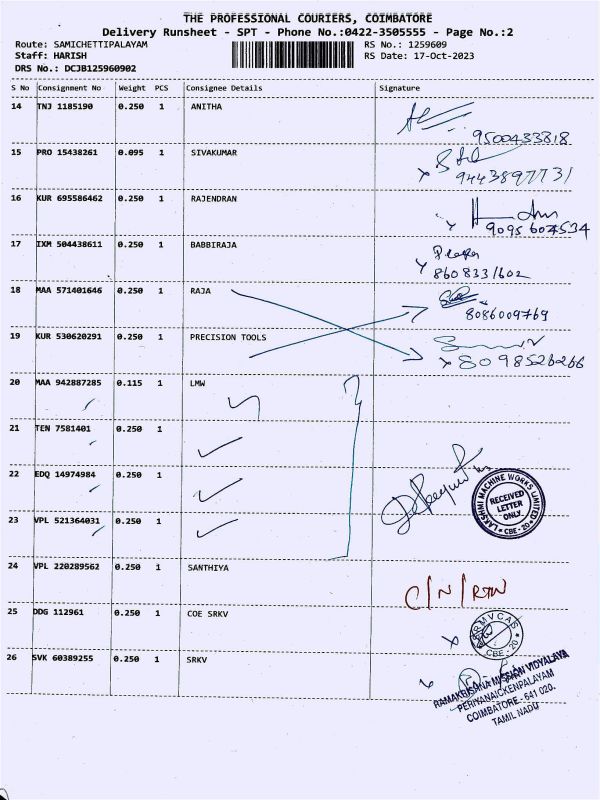 THE PROFESSIONAL COURIERS, COIMBATORE
Delivery Runsheet - SPT - Phone No.:0422-3505555 - Page No.:2
Route: SAMICHETTIPALAYAM RS No.: 1259609
Staff: HARISH RS Date: 17-Oct-2023
DRS No.: DCJB125960902
S No Consignment No Weight PCS Consignee Details Signature
14 TNJ 1185190 0.250 1 ANITHA
9500433818
15 PRO 15438261 0.095 1 SIVAKUMAR
9443897731
16 KUR 695586462 0.250 1 RAJENDRAN
9095604534
17 IXM 504438611 0.250 1 BABBIRAJA
8608331602
18 MAA 571401646 0.250 1 RAJA
8086009769
19 KUR 530620291 0.250 1 PRECISION TOOLS
8098526266
20 MAA 942887285 0.115 1 LMW
21 TEN 7581401 0.250 1
22 EDQ 14974984 0.250 1
LAKSHMI MACHINE WORKS LIMITED
RECEIVED
LETTER
ONLY.
CBE-20
23 VPL 521364031 0.250 1
24 VPL 220289562 0.250 1 SANTHIYA
C/N/RTN
25 DDG 112961 0.250 1 COE SRKV
SRMVCAS
CBE-20
26 SVK 60389255 0.250 1 SRKV
RAMAKRISHNA MISSION VIDYALAYA
PERIYANAICKENPALAYAM
COIMBATORE - 641 020.
TAMIL NADU